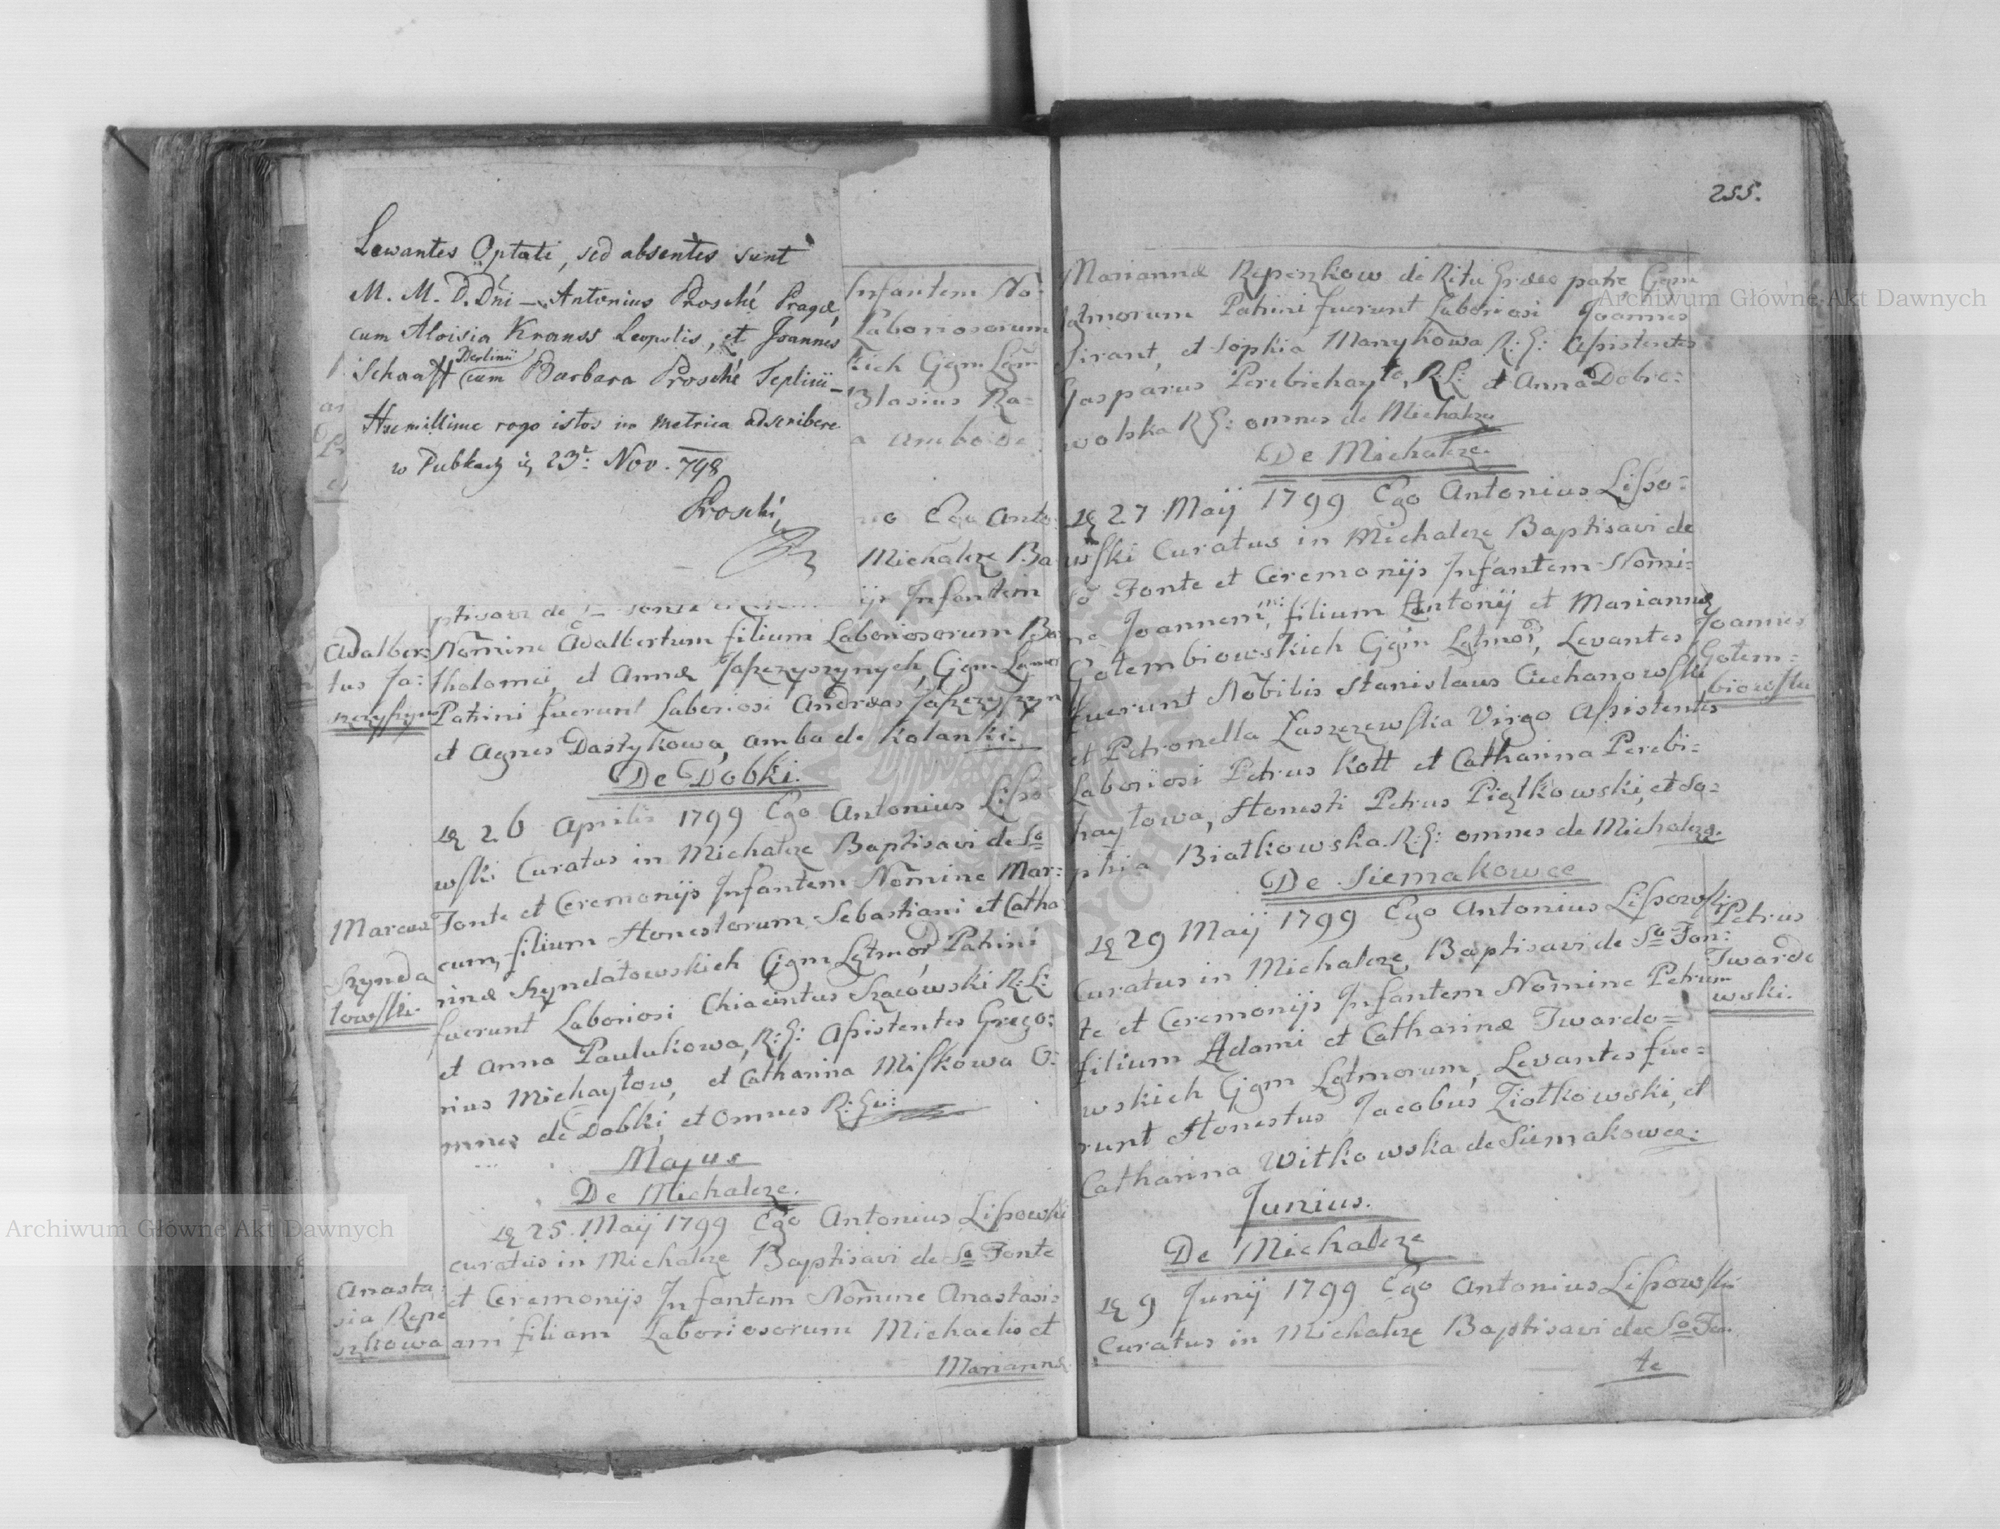 Lewantes Optati, sed absentes sunt
M. M. D. Dni — Antonius Prosché Pragæ,
cum Aloisia Kranss Leopolis, et Joannes
Schaaff Berlinii cum Barbara Prosché Teplini —
Humillime rogo istos in metrica adscribere
w Dubkach 23 Nov. 798
Prosché
Infantem No:
Laboriosorum
kich Ggm Lgm
Blasius Ra=
a ambo de
no Ego Anto:
Michalcze Ba
ijs Infantem
Adalber=
tus Ja:
szczyszyn
Nomine Adalbertum filium Laboriosorum Bar
tholomei, et Annæ Jaszczyszynych, Ggm Lgmor
Patrini fuerunt Laboriosi Andreas Jaszczyszyn
et Agnes Dastykowa, ambo de Kolanki.
De Dobki.
26 Aprilis 1799 Ego Antonius Lisso
wski Curatus in Michalcze Baptisavi de So
Marcus
Szynda
lowski.
Fonte et Ceremonijs Infantem Nomine Mar=
cum, filium Honestorum Sebastiani et Catha
rinæ Szyndalowskich Ggm Lgtmor Patrini
fuerunt Laboriosi Chiacintus Szacowski R: L:
et Anna Paulukowa, R: G: Assistentes Grego:
rius Michaylow, et Catharina Miskowa O:
mnes de Dobki, et Omnes R: Gi:
Majus
De Michalcze.
25. Maij 1799 Ego Antonius Lissowski
curatus in Michalcze Baptisavi de So Fonte
Anasta:
sia Repe
szkowa
et Ceremonijs Infantem Nomine Anastasi:
am filiam Laboriosorum Michaelis et
Mariannæ
255.
Mariannæ Repeszkow de Ritu Græco patre Ggm
Lgmorum Patrini fuerunt Laboriosi Joannes
Sirant, et Sophia Manykowa R: G: Assistentes
Gasparus Perebichayło, R: L: et Anna Dobro:
wolska R G: omnes de Michalcze
De Michalcze.
27 Maij 1799 Ego Antonius Lisso:
wski Curatus in Michalcze Baptisavi de
So Fonte et Ceremonijs Infantem Nomi:
ne Joannem, filium Antonij et Mariannæ
Joannes
Gołem=
biowski
Gołembiowskich Ggm Lgtmor, Levantes
fuerunt Nobilis Stanislaus Ciechanowski
et Petronella Zaszczewska Virgo Assistentes
Laboriosi Petrus Kott et Catharina Perebi=
haylowa, Honesti Petrus Piątkowski, et So=
phia Białkowska R: G: omnes de Michalcze.
De Siemakowce
29 Maij 1799 Ego Antonius Lissowski
Petrus
Twardo
wski.
Curatus in Michalcze Baptisavi de So Fon:
te et Ceremonijs Infantem Nomine Petrum
filium Adami et Catharinæ Twardo=
wskich Ggm Lgtmorum, Levantes fue=
runt Honestus Jacobus Ziołkowski, et
Catharina Witkowska de Siemakowce:
Junius.
De Michalcze
9 Junij 1799 Ego Antonius Lissowski
Curatus in Michalcze Baptisavi de So Fon
te
Archiwum Główne Akt Dawnych
Archiwum Główne Akt Dawnych